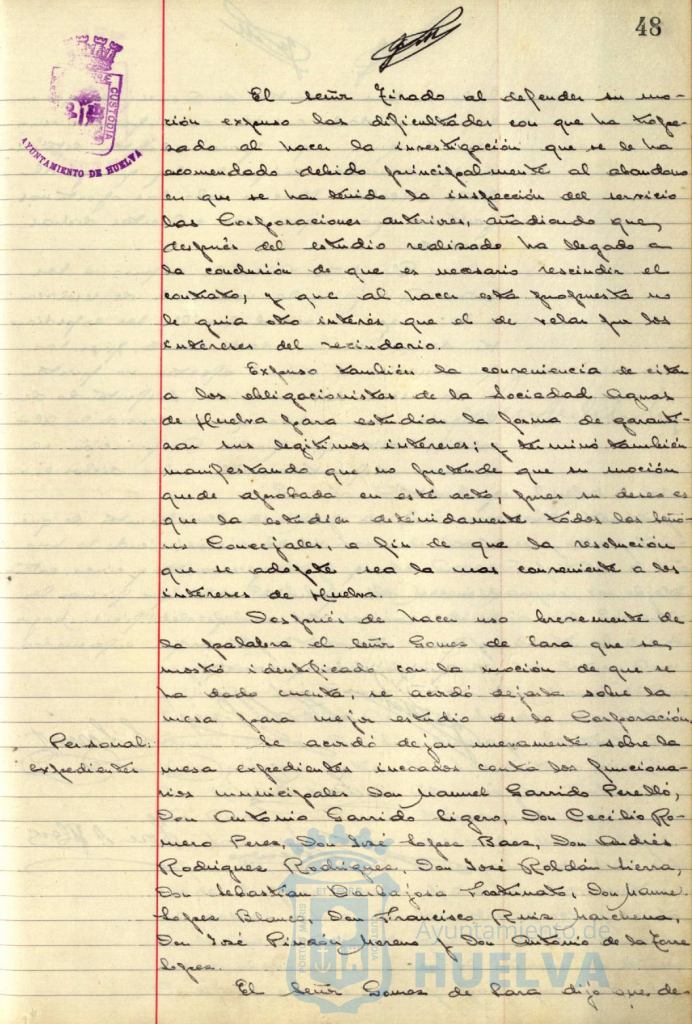 48
CUSTODIA
AYUNTAMIENTO DE HUELVA
El señor Tirado al defender su mo-
ción expuso las dificultades con que ha trope-
zado al hacer la investigación que se le ha
acomendado debido principalmente al abandono
en que se han tenido la inspección del servicio
las Corporaciones anteriores, añadiendo que,
después del estudio realizado ha llegado a
la conclusión de que es necesario rescindir el
contrato, y que al hacer esta propuesta no
le guia otro interés que el de velar por los
intereses del vecindario.
Expuso también la conveniencia de citar
a los obligacionistas de la Sociedad Aguas
de Huelva para estudiar la forma de garanti-
zar sus legitimos intereses; y terminó también
manifestando que no pretende que su moción
quede aprobada en este acto, pues su deseo es
que la estudien detenidamente todos los Seño-
res Concejales, a fin de que la resolución
que se adopte sea la mas conveniente a los
intereses de Huelva.
Después de hacer uso brevemente de
la palabra el señor Gomez de Lara que se
mostró identificado con la moción de que se
ha dado cuenta, se acordó dejarla sobre la
mesa para mejor estudio de la Corporación.
Personal:
expedientes
Se acordó dejar nuevamente sobre la
mesa expedientes incoados contra los funciona-
rios municipales Don Manuel Garrido Perelló,
Don Antonio Garrido Ligero, Don Cecilio Ro-
mero Perez, Don José Lopez Baez, Don Andrés
Rodriguez Rodriguez, Don José Roldán Sierra,
Don Sebastian Fortunato, Don Manuel
Lopez Blanco, Don Francisco Ruiz Marchena,
Don José Pinzón Moreno y Don Antonio de la Torre
Lopez.
El señor Gomez de Lara dijo que de-
Ayuntamiento de
HUELVA